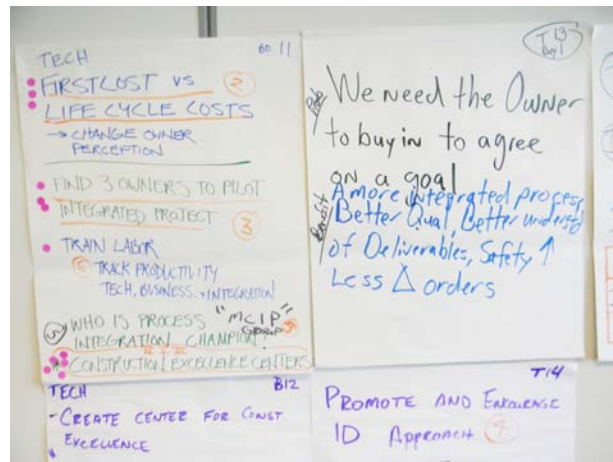 TECH
BO. 11
FIRST COST VS
2
LIFE CYCLE COSTS
→ CHANGE OWNER
PERCEPTION
FIND 3 OWNERS TO PILOT
INTEGRATED PROJECT
3
TRAIN LABOR
6 TRACK PRODUCTIVITY
TECH, BUSINESS, INTEGRATION
5 WHO IS PROCESS "MCIP"
INTEGRATION CHAMPION?
CONSTRUCTION EXCELLENCE CENTERS
T13
We need the Owner
to buy in to agree
on a goal
Benefit
A more integrated process,
Better Qual, Better underst'd
of Deliverables, Safety ↑
Less Δ orders
TECH
B12
- CREATE CENTER FOR CONST.
EXCELLENCE
T14
PROMOTE AND ENCOURAGE
ID APPROACH 4